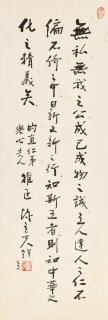 無私無我之公成己成物之誠立人達人之仁不
偏不倚之中日新又新之行知斯五者則知中華文
化之精義矣
昀直仁弟 雅正 陳立夫